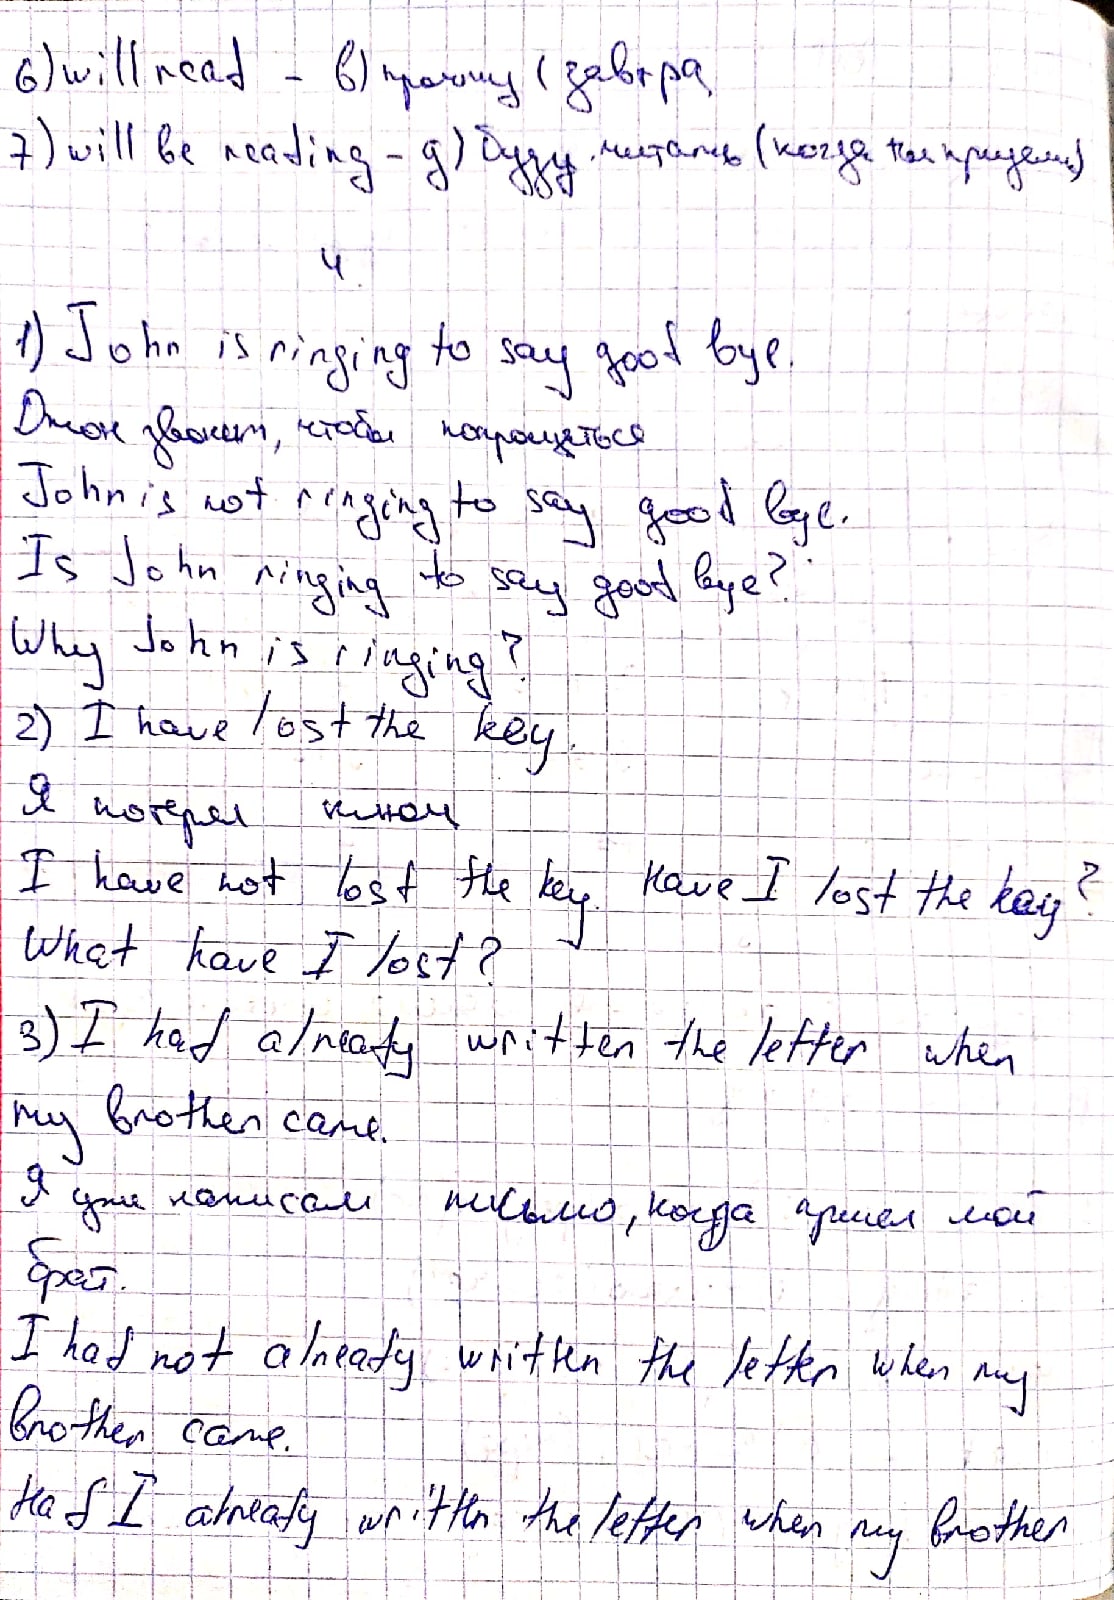 6) will read - в) прочту (завтра
7) will be reading - g) буду читать (когда ты придешь)
4
1) John is ringing to say good bye.
Джон звонит, чтобы попрощаться
John is not ringing to say good bye.
Is John ringing to say good bye?
Why John is ringing?
2) I have lost the key.
Я потерял ключ
I have not lost the key. Have I lost the kay?
What have I lost?
3) I had already written the letter when
my brother came.
Я уже написал письмо, когда пришел мой
брат.
I had not already written the letter when my
brother came.
Had I already written the letter when my brother